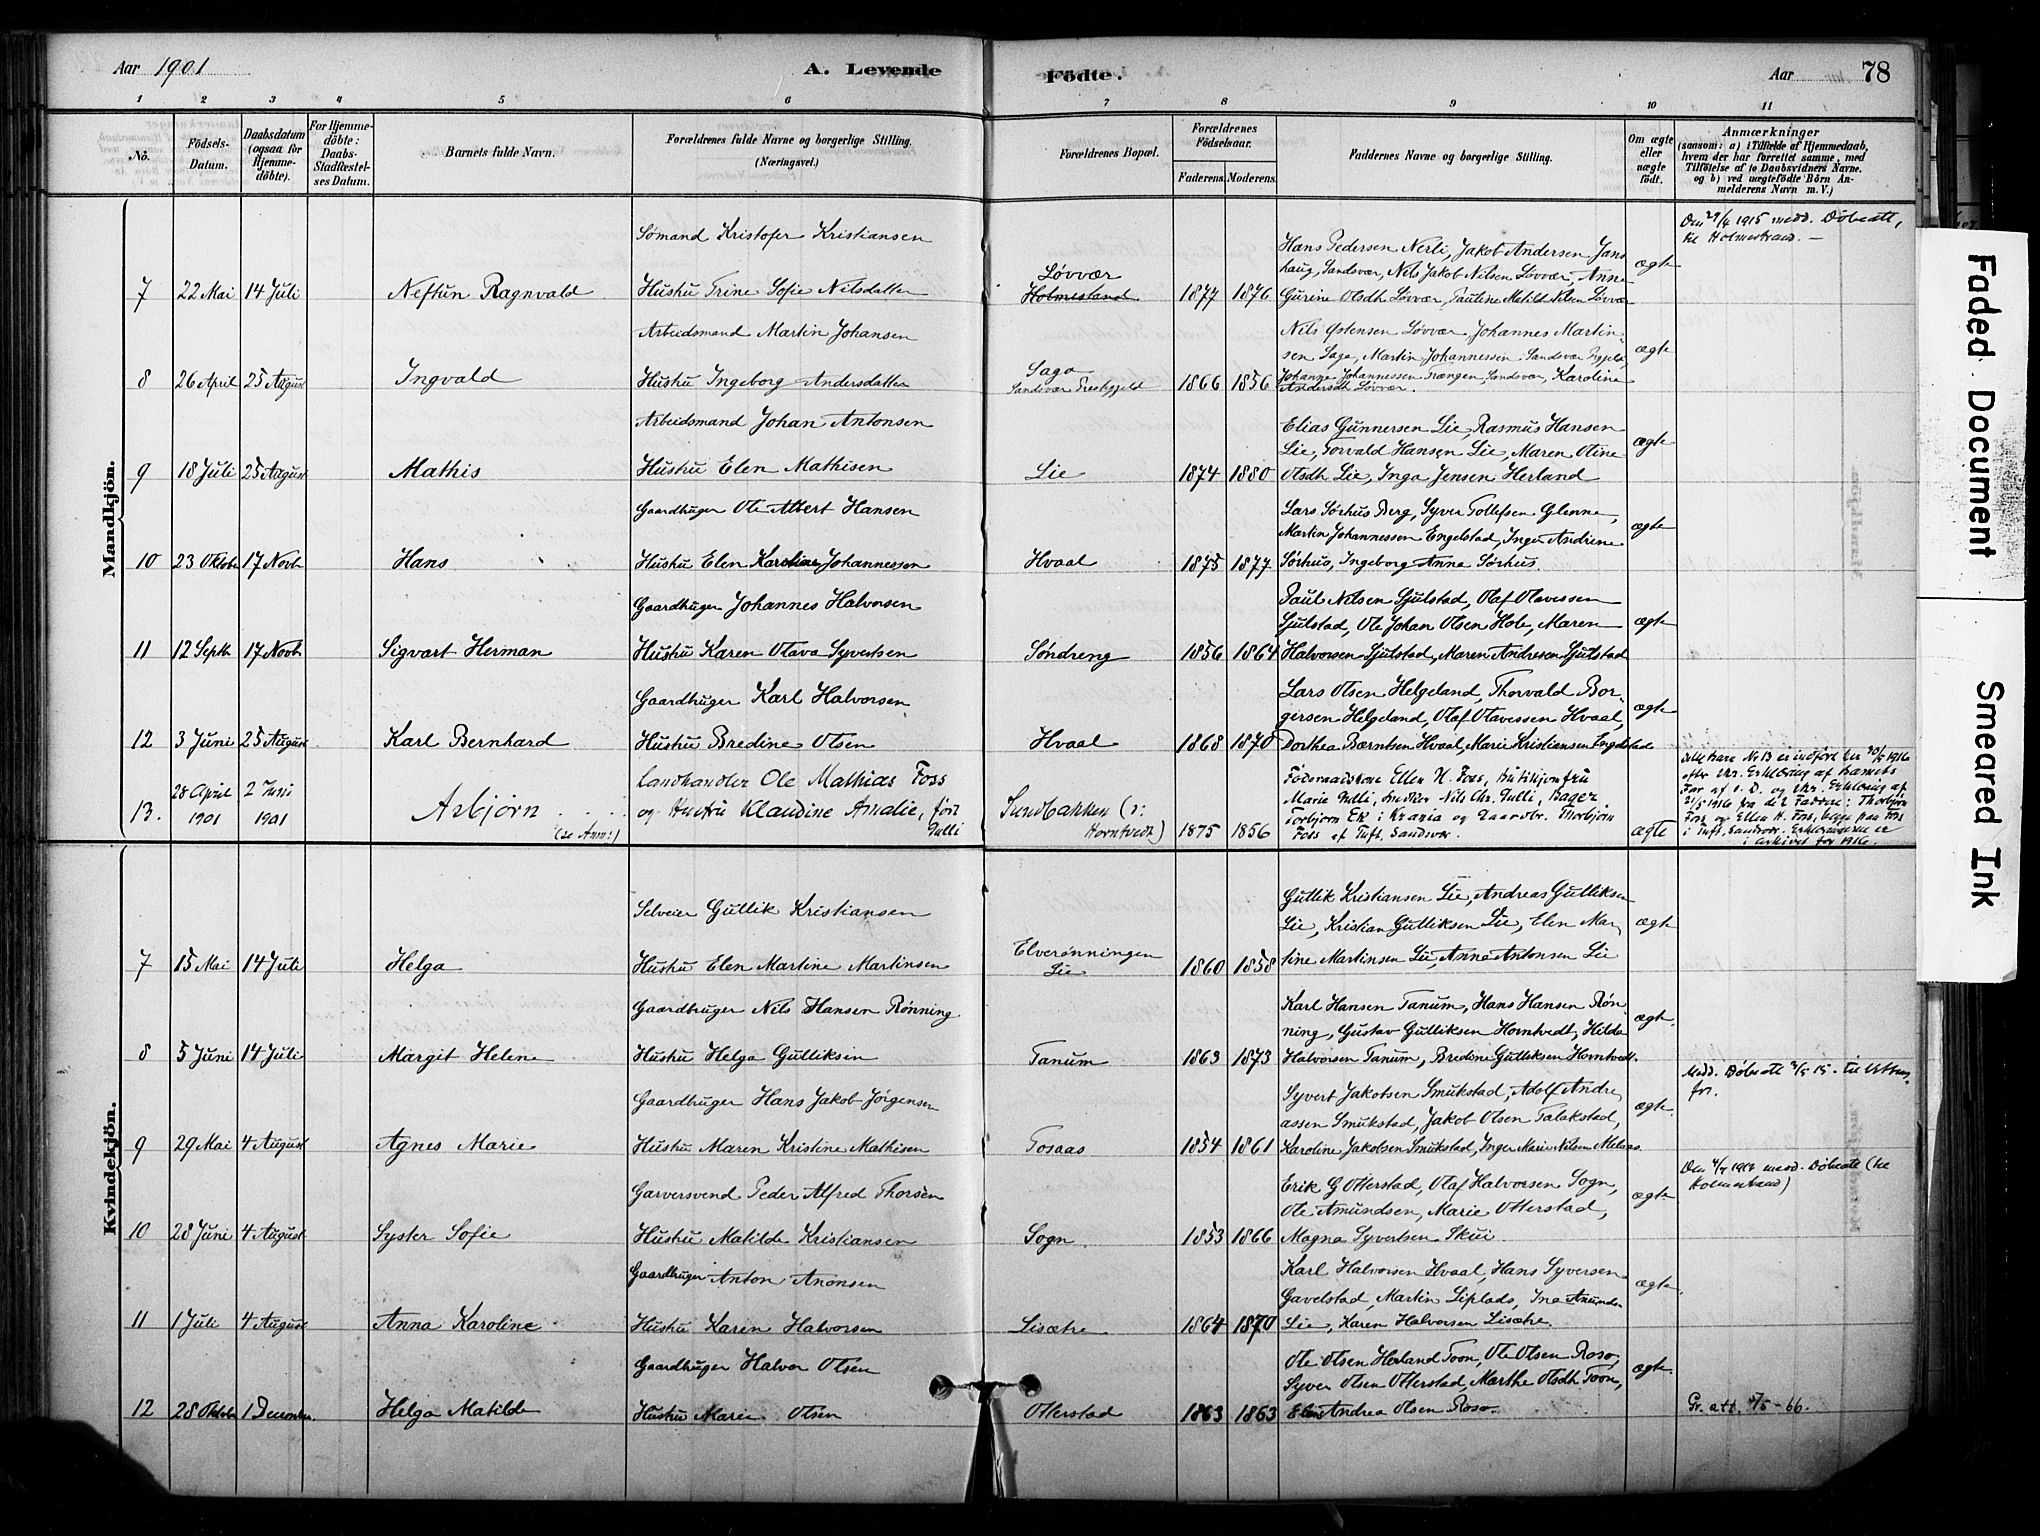 Aar 1901
A. Levende
Födte.
Aar
78
1 2 3 4 5 6 7 8 9 10 11
No.
Födsels-
Datum.
Daabsdatum
(ogsaa for
Hjemme-
döbte).
For Hjemme-
döbte:
Daabs-
Stadfæstel-
ses Datum.
Barnets fulde Navn.
Forældrenes fulde Navne og borgerlige Stilling.
(Næringsvei.)
Forældrenes Bopæl.
Forældrenes
Födselsaar.
Faderens. Moderens.
Faddernes Navne og borgerlige Stilling.
Om ægte
eller
uægte
født.
Anmærkninger
(saasom: a) i Tilfælde af Hjemmedaab,
hvem der har forrettet samme, med
Tilföielse af to Daabsvidners Navne.
og b) ved uægtefödte Börn An-
melderens Navn m. V.)
Mandkjön.
Sømand Kristofer Kristiansen
7 22 Mai 14 Juli Neftun Ragnvald Hustru Trine Sofie Nilsdatter
Løvvær
Holmestrand
1877 1876
Hans Pedersen Nerli, Jakob Andersen Jans
haug, Sandsvær, Nils Jakob Nilsen Løvvær, Anne
Gurine Olsdtr Løvvær, Pauline Matild Nilsen Løvvær
ægte
Den 29/4 1915 medd. Døbeatt,
til Holmestrand. —
Arbeidsmand Martin Johansen
8 26 April 25 August Ingvald Hustru Ingeborg Andersdatter
Saga
Sandsvær Prestgjeld
1866 1856
Nils Østensen Løvvær, Johannes Martin-
sen Saga, Martin Johannessen Sandsvær Prgjeld,
Johanne Johannessen Trængen, Sandsvær, Karoline
Andersdtr Løvvær.
ægte
Arbeidsmand Johan Antonsen
9 18 Juli 25 August Mathis Hustru Elen Mathisen
Lie
1874 1880
Elias Gunnersen Lie, Rasmus Hansen
Lie, Torvald Hansen Lie, Maren Otine
Olsdtr Lie, Inga Jensen Herland
ægte
Gaardbruger Ole Albert Hansen
10 23 Oktobr 17 Novbr Hans Hustru Elen Karoline Johannessen
Hvaal
1875 1877
Lars Sørhus Berg, Syver Tollefsen Glenne,
Martin Johannessen Engelstad, Inger Andrine
Sørhus, Ingeborg Anna Sørhus.
ægte
Gaardbruger Johannes Halvorsen
11 12 Septbr 17 Novbr Sigvart Herman Hustru Karen Olava Syvertsen
Søndreng
1856 1864
Paul Nilsen Sjulstad, Olaf Olavessen
Sjulstad, Ole Johan Olsen Hole, Maren
Halvorsen Sjulstad, Maren Andresen Sjulstad
ægte
Gaardbruger Karl Halvorsen
12 3 Juni 25 August Karl Bernhard Hustru Bredine Olsen
Hvaal
1868 1870
Lars Olsen Helgeland, Thorvald Bor-
gersen Helgeland, Olaf Olavessen Hvaal,
Dorthea Bærntsen Hvaal, Marie Kristiansen Engelstad
ægte
13. 28 April
1901
2 Juni
1901
Asbjørn
(se Anm:)
Landhandler Ole Mathias Foss
og Hustru Klaudine Amalie, født
Tulli
Sundbakken (:
Horntvedt)
1875 1856
Marie Tulli, Nils Chr. Tulli, Bager
Torbjørn Ek i Krania og Gaardbr. Thorbjørn
Foss af Tuft, Sandsvær.
ægte
Dette Barn No 13 er indført her /5 1916
efter skr. Erklæring af Barnets
Far af s. D. og skr. Erklæring af
21/5 1916 fra de 2 Faddere: Thorbjørn
Foss og Ellen H. Foss, begge paa Foss
i Tuft, Sandsvær. Erklæringerne er
i arkivet for 1916.
Kvindekjön.
Selveier Gullik Kristiansen
7 15 Mai 14 Juli Helga Hustru Elen Martine Martinsen
Elverønningen
Lie
1860 1858
Gullik Kristiansen Lie, Andreas Gulliksen
Lie, Kristian Gulliksen Lie, Elen Mar-
tine Martinsen Lie, Anne Antonsen Lie
ægt
Gaardbruger Nils Hansen Rønning.
8 5 Juni 14 Juli Margit Helene Hustru Helga Gulliksen
Tanum
1863 1873
Karl Hansen Tanum, Hans Hansen Røn-
ning, Gustav Gulliksen Horntvedt, Hilda
Halvorsen Tanum, Bredine Gulliksen Horntvedt.
ægt.
Gaardbruger Hans Jakob Jörgensen
9 29 Mai 4 August Agnes Marie Hustru Maren Kristine Mathisen
Fosaas
1854 1861
Syvert Jakobsen Smukstad, Adolf Andre
assen Smukstad, Jakob Olsen Falakstad,
Karoline Jakobsen Smukstad, Inger Marie Nilsen Melaas.
ægte.
Medd. Døbeatt /5 15. til
Garversvend Peder Alfred Thorsen
10 28 Juni 4 August Syster Sofie Hustru Matilde Kristiansen
Sogn.
1853 1866
Erik G Otterstad, Olaf Halvorsen Sogn,
Ole Amundsen, Marie Otterstad,
Magna Syvertsen Skui.
ægte
medd. Døbeatt (til
Holmestrand)
Gaardbruger Anton Anonsen
11 1 Juli 4 August Anna Karoline Hustru Karen Halvorsen
Lisætre
1864 1870
Karl Halvorsen Hvaal, Hans Syversen
Gavelstad, Martin Liplads, Ine Amunds-
Lie, Karen Halvorsen Lisætre.
ægte.
Gaardbruger Halvor Olsen
12 28 Oktobr 1 December Helga Matilde Hustru Marie Olsen
Otterstad
1863 1863
Ole Olsen Herland Toon, Ole Olsen Roso,
Syver Olsen Otterstad, Marthe Olsdtr Toon,
Andrea Olsen Roso.
ægte.
Gr. att. /5 - 66.
Faded Document
Smeared Ink